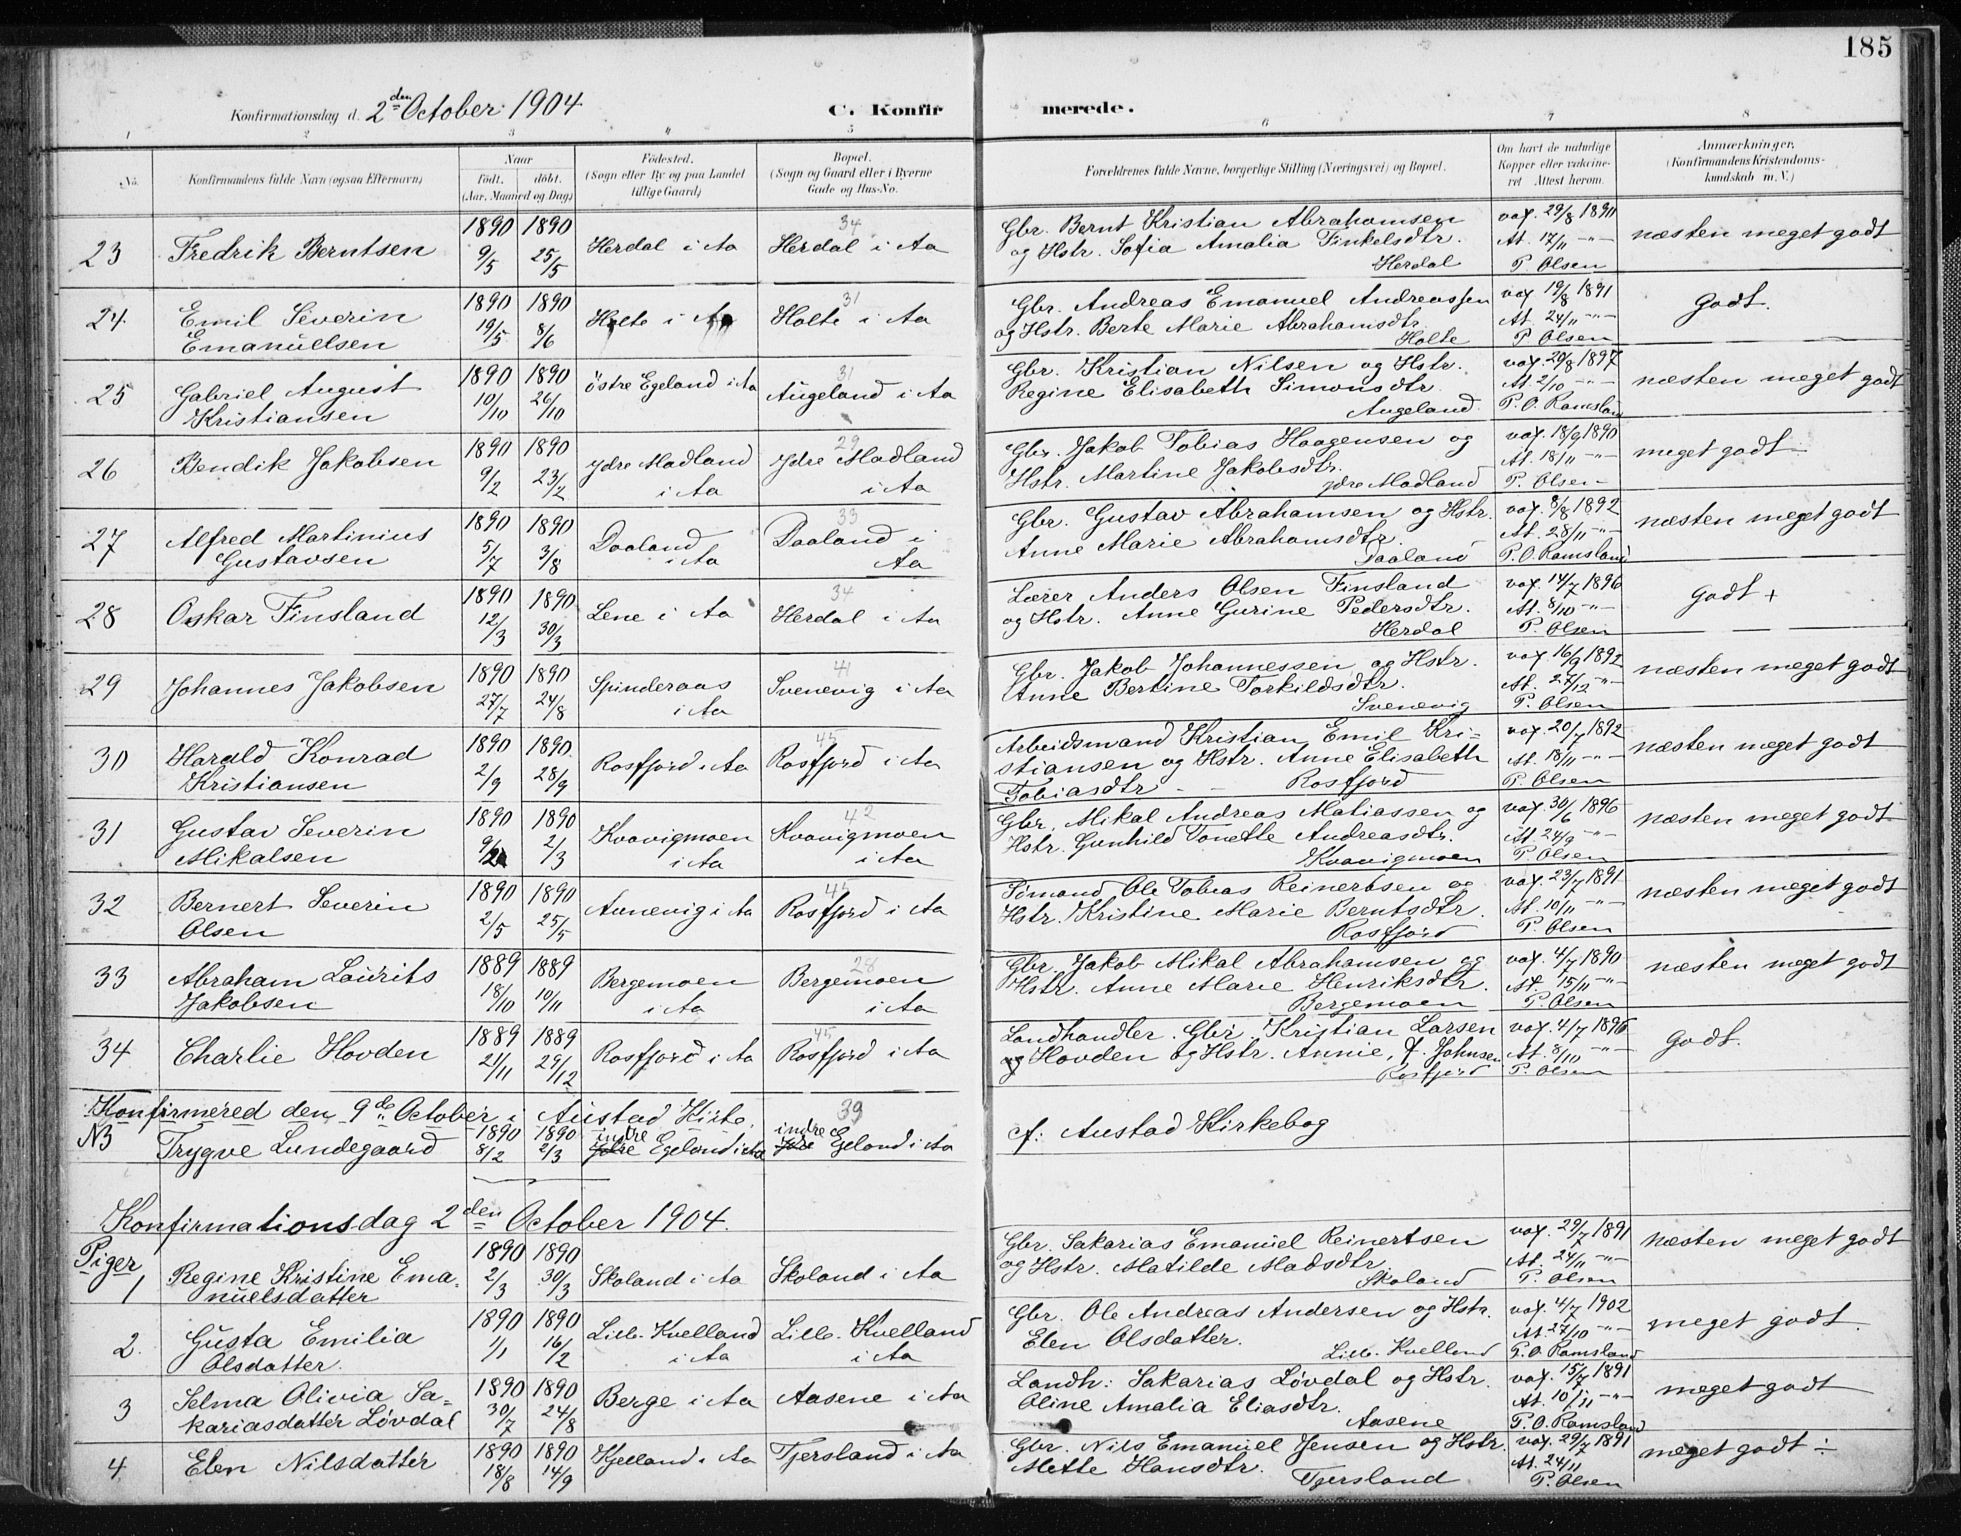 185
Konfirmationsdag d. 2den October 1904
C. Konfirmerede.
1 2 3 4 5 6 7 8
No. Konfirmandens fulde Navn (ogsaa Efternavn) Naar Födt. döbt. (Aar, Maaned og Dag) Födested. (Sogn eller By og paa Landet tillige Gaard) Bopæl. (Sogn og Gaard eller i Byerne Gade og Hus-No. Forældrenes fulde Navne, borgerlige Stilling (Næringsvei) og Bopæl. Om havt de naturlige Kopper eller vaccineret Attest herom. Anmærkninger. (Konfirmandens Kristendomskundskab m. V.)
34
23 Fredrik Berntsen 1890 9/5 1890 25/5 Herdal i Aa Herdal i Aa Gbr. Bernt Kristian Abrahamsen
og Hstr. Sofia Amalia Finkelsdtr. Herdal vax. 29/8 1890 At. 17/11 -"- P. Olsen næsten meget godt
31
24 Emil Severin 1890 19/5 1890 8/6 Holte i Aa Holte i Aa Gbr. Andreas Emanuel Andreassen
Emanuelsen og Hstr. Berte Marie Abrahamsdtr. Holte vax 19/8 1891 At. 24/11 -"- P. Olsen Godt.
31
25 Gabriel August 1890 10/10 1890 26/10 östre Egeland i Aa Augeland i Aa Gbr. Kristian Nilsen og Hstr.
Kristiansen Regine Elisabeth Simonsdtr. Augeland vax. 20/8 1897 At. 2/10 -"- P. O. Ramsland næsten meget godt
29
26 Bendik Jakobsen 1890 9/2 1890 23/2 Ydre Madland i Aa Ydre Madland i Aa Gbr. Jakob Tobias Haagensen og
Hstr. Martine Jakobsdtr. ydre Madland vax. 18/9 1890 At. 18/11 -"- P. Olsen meget godt
33
27 Alfred Martinius 1890 5/7 1890 3/8 Daaland i Aa Daaland i Aa Gbr. Gustav Abrahamsen og Hstr.
Gustavsen Anne Marie Abrahamsdtr. Daaland vax. 8/8 1892 At. 28/11 -"- P. O. Ramsland næsten meget godt
34
28 Oskar Finsland 1890 12/3 1890 30/3 Lene i Aa Herdal i Aa Lærer Anders Olsen Finsland
og Hstr. Anne Gurine Pedersdtr. Herdal vax. 14/7 1896 At. 8/10 -"- P. Olsen godt +
41
29 Johannes Jakobsen 1890 27/7 1890 24/8 Spinderaas i Aa Svenevig i Aa Gbr. Jakob Johannessen og Hstr.
Anne Bertine Torkildsdtr. Svenevig vax. 16/9 1892 At. 27/12 -"- P. Olsen næsten meget godt
45
30 Harald Konrad 1890 2/9 1890 28/9 Rosfjord i Aa Rosfjord i Aa Arbeidsmand Kristian Emil Kri-
Kristiansen stiansen og Hstr. Anne Elisabeth
Tobiasdtr - Rosfjord vax. 20/7 1892 At. 18/11 -"- P. Olsen næsten meget godt
42
31 Gustav Severin 1890 1890 2/3 Kvavigmoen i Aa Kvavigmoen i Aa Gbr. Mikal Andreas Matiassen og
Mikalsen Hstr. Gunhild Tonette Andreasdtr. Kvavigmoen vax. 30/6 1896 At. 24/9 -"- P. Olsen næsten meget godt
45
32 Bernert Severin 1890 2/5 1890 25/5 Aunevig i Aa Rosfjord i Aa Sömand Ole Tobias Reinertsen og
Olsen Hstr. Kristine Marie Berntsdtr. Rosfjord vax. 23/7 1891 At. 10/11 -"- P. Olsen næsten meget godt
28
33 Abraham Laurits 1889 18/10 1889 10/11 Bergemoen i Aa Bergemoen i Aa Gbr. Jakob Mikal Abrahamsen og
Jakobsen Hstr. Anne Marie Henriksdtr. Bergemoen vax. 4/7 1890 At. 15/11 -"- P. Olsen næsten meget godt
45
34 Charlie Hovden 1889 21/11 1889 29/12 Rosfjord i Aa Rosfjord i Aa Landhandler. Gbr Kristian Larsen
Hovden og Hstr. Annie, f. Johnsen Rosfjord vax. 4/7 1896 At. 8/10 -"- P. Olsen godt.
Konfirmered den 9de October i Austad Kirke. 39
NB Trygve Lundegaard 1890 8/2 1890 2/3 indre Ydre Egeland i Aa indre Ydre Egeland i Aa cf: Austad Kirkebog
Konfirmationsdag 2den October 1904.
Piger
1 Regine Kristine Ema- 1890 2/3 1890 30/3 Skoland i Aa Skoland i Aa Gbr. Sakarias Emanuel Reinertsen
nuelsdatter og Hstr. Matilde Madsdtr. Skoland vax. 29/7 1891 At. 24/11 -"- P. Olsen næsten meget godt
2 Gusta Emilia 1890 1/1 1890 16/2 Lille-Kvelland i Aa Lille-Kvelland i Aa Gbr. Ole Andreas Andersen og Hstr.
Olsdatter. Elen Olsdatter. Lille-Kvelland vax. 4/7 1902 At. 27/10 -"- P. O. Ramsland meget godt.
3 Selma Olivia Sa- 1890 30/7 1890 24/8 Berge i Aa Aasene i Aa Landh: Sakarias Løvdal og Hstr.
kariasdatter Løvdal Oline Amalia Eliasdtr. Aasene vax. 15/7 1891 At. 10/11 -"- P. O. Ramsland meget godt
4 Elen Nilsdatter 1890 18/8 1890 14/9 Kjelland i Aa Tjersland i Aa Gbr. Nils Emanuel Jensen og Hstr.
Mette Hansdtr. Tjersland vax. 29/7 1891 At. 24/11 P. Olsen meget godt ÷